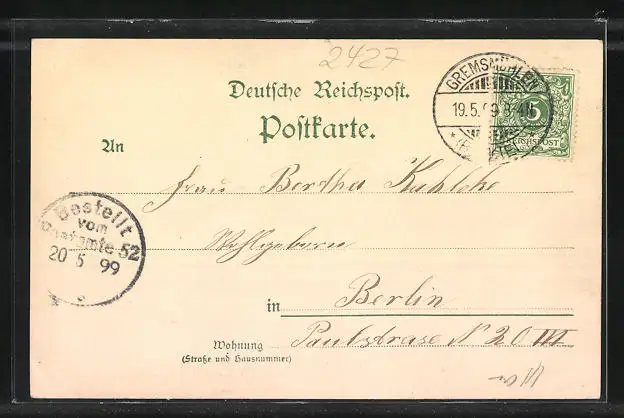 2427
Deutsche Reichspost.
Postkarte.
GREMSMÜHLEN
19.5.99 8-9N
5
REICHSPOST
An
Frau Bertha Kuhlcke
Wohlgeboren
Bestellt
vom
Postamte 52
20 5 99
in
Berlin
Wohnung
(Straße und Hausnummer)
Paulstrase N 20 III